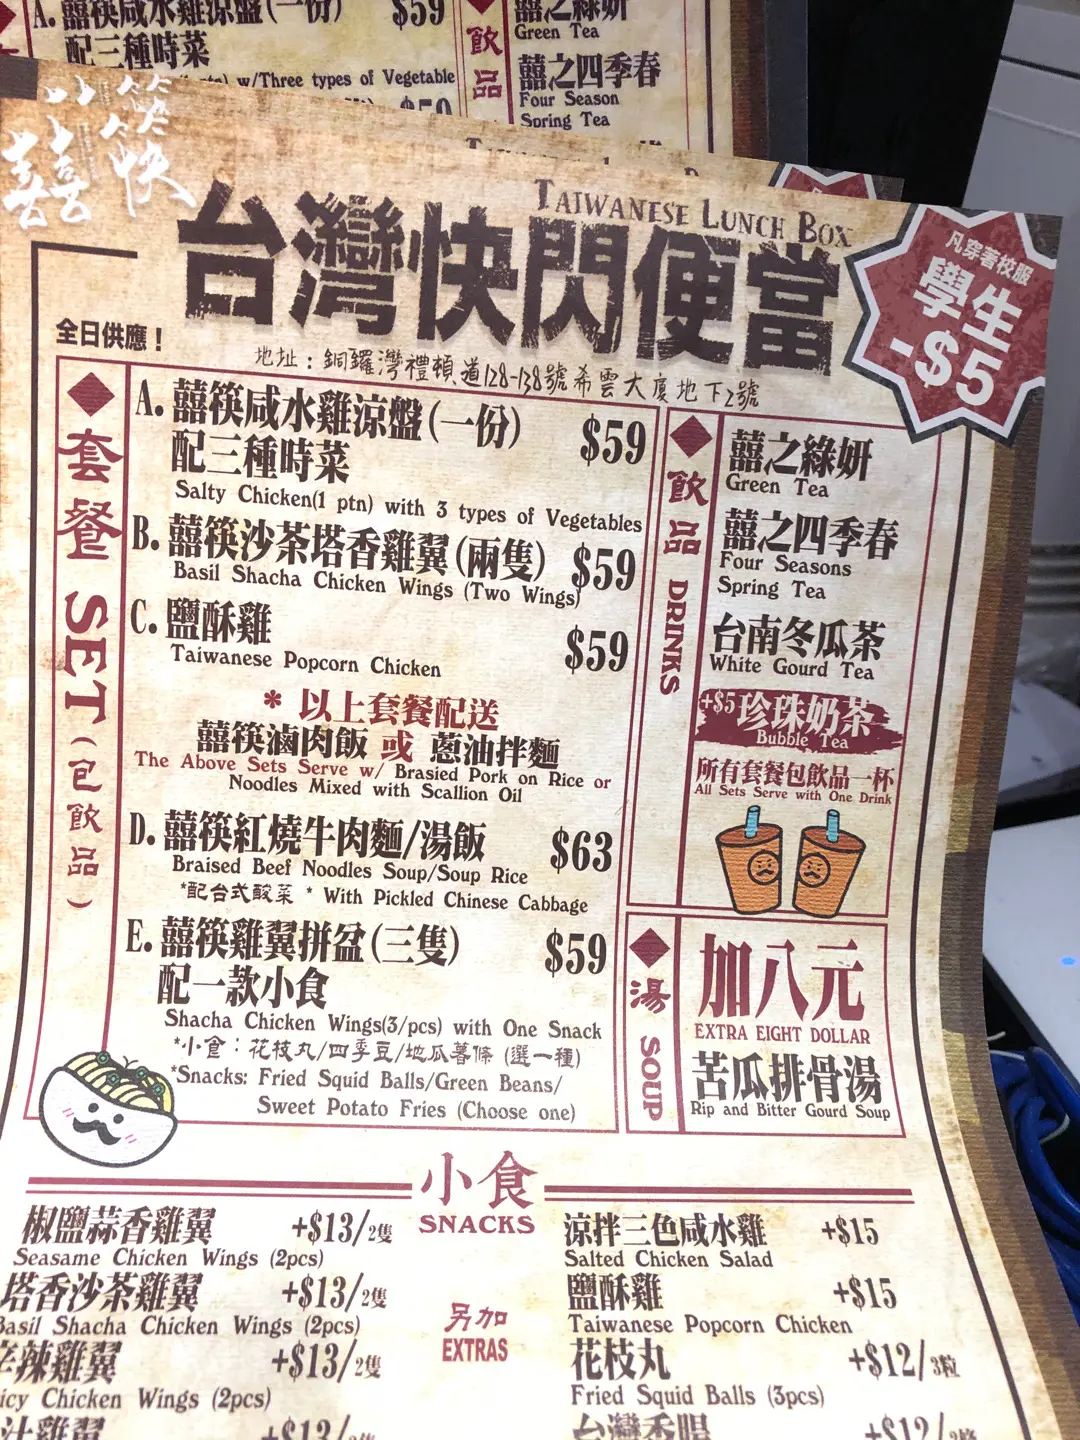 A. 囍筷咸水雞涼盤(一份) $59
配三種時菜
w/Three types of Vegetable
飲品
囍之綠妍
Green Tea
囍之四季春
Four Season
Spring Tea
囍筷
TAIWANESE LUNCH BOX
台灣快閃便當
凡穿著校服
學生
-$5
全日供應！
地址：銅鑼灣禮頓道128-138號希雲大廈地下2號
套餐 SET (包飲品)
A. 囍筷咸水雞涼盤(一份) $59
配三種時菜
Salty Chicken(1 ptn) with 3 types of Vegetables
B. 囍筷沙茶塔香雞翼(兩隻) $59
Basil Shacha Chicken Wings (Two Wings)
C. 鹽酥雞 $59
Taiwanese Popcorn Chicken
* 以上套餐配送
囍筷滷肉飯 或 蔥油拌麵
The Above Sets Serve w/ Brasied Pork on Rice or
Noodles Mixed with Scallion Oil
D. 囍筷紅燒牛肉麵/湯飯 $63
Braised Beef Noodles Soup/Soup Rice
*配台式酸菜 * With Pickled Chinese Cabbage
E. 囍筷雞翼拼盆(三隻) $59
配一款小食
Shacha Chicken Wings(3/pcs) with One Snack
*小食：花枝丸/四季豆/地瓜薯條 (選一種)
*Snacks: Fried Squid Balls/Green Beans/
Sweet Potato Fries (Choose one)
飲品 DRINKS
囍之綠妍
Green Tea
囍之四季春
Four Seasons
Spring Tea
台南冬瓜茶
White Gourd Tea
+$5珍珠奶茶
Bubble Tea
所有套餐包飲品一杯
All Sets Serve with One Drink
湯 SOUP
加八元
EXTRA EIGHT DOLLAR
苦瓜排骨湯
Rip and Bitter Gourd Soup
小食
SNACKS
另加
EXTRAS
椒鹽蒜香雞翼 +$13/2隻
Seasame Chicken Wings (2pcs)
塔香沙茶雞翼 +$13/2隻
Basil Shacha Chicken Wings (2pcs)
辣雞翼 +$13/2隻
icy Chicken Wings (2pcs)
汁雞翼 +$13/2隻
涼拌三色咸水雞 +$15
Salted Chicken Salad
鹽酥雞 +$15
Taiwanese Popcorn Chicken
花枝丸 +$12/3粒
Fried Squid Balls (3pcs)
台灣香腸 +$12/